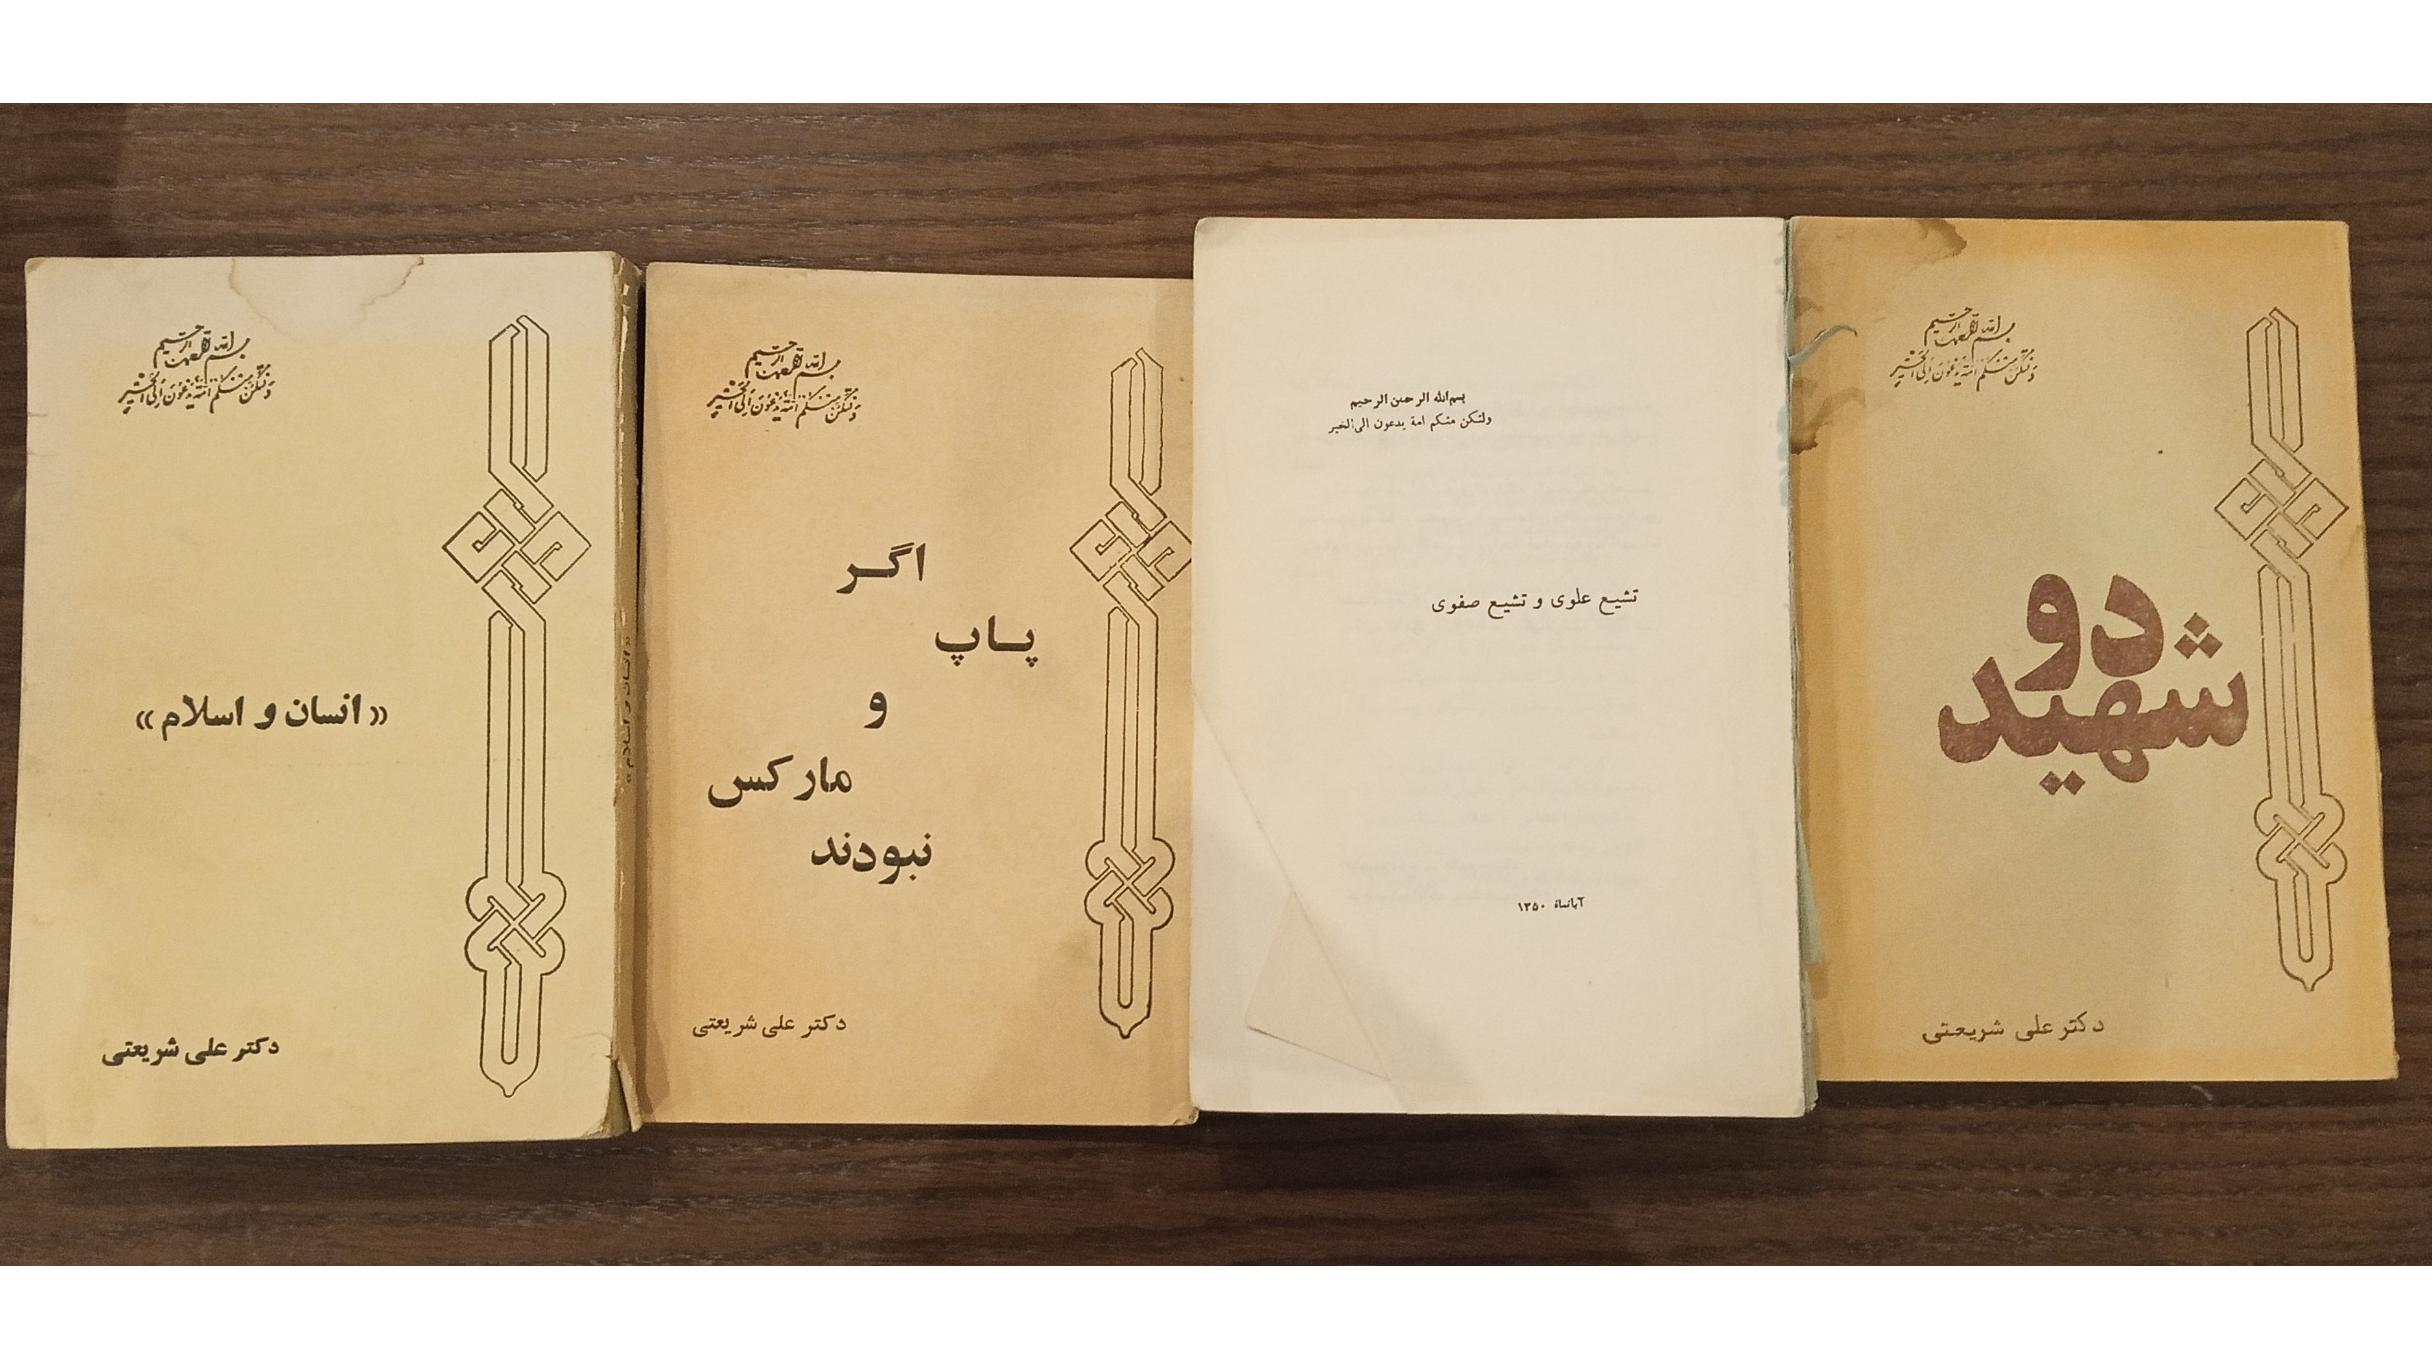 بسم الله الرحمن الرحیم
ولتکن منکم امة یدعون الی الخیر
«انسان و اسلام»
دکتر علی شریعتی
«انسان و اسلام»
بسم الله الرحمن الرحیم
ولتکن منکم امة یدعون الی الخیر
اگر
پاپ
و
مارکس
نبودند
دکتر علی شریعتی
بسم‌الله الرحمن الرحیم
ولتکن منکم امة یدعون الی‌الخیر
تشیع علوی و تشیع صفوی
آبانماه ۱۳۵۰
بسم الله الرحمن الرحیم
ولتکن منکم امة یدعون الی الخیر
دو
شهید
دکتر علی شریعتی